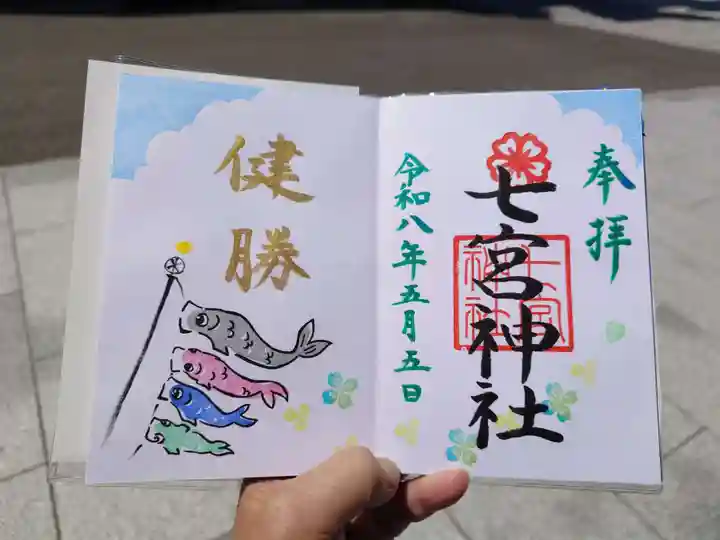 奉拝
七宮神社
七宮神社
令和八年五月五日
健勝